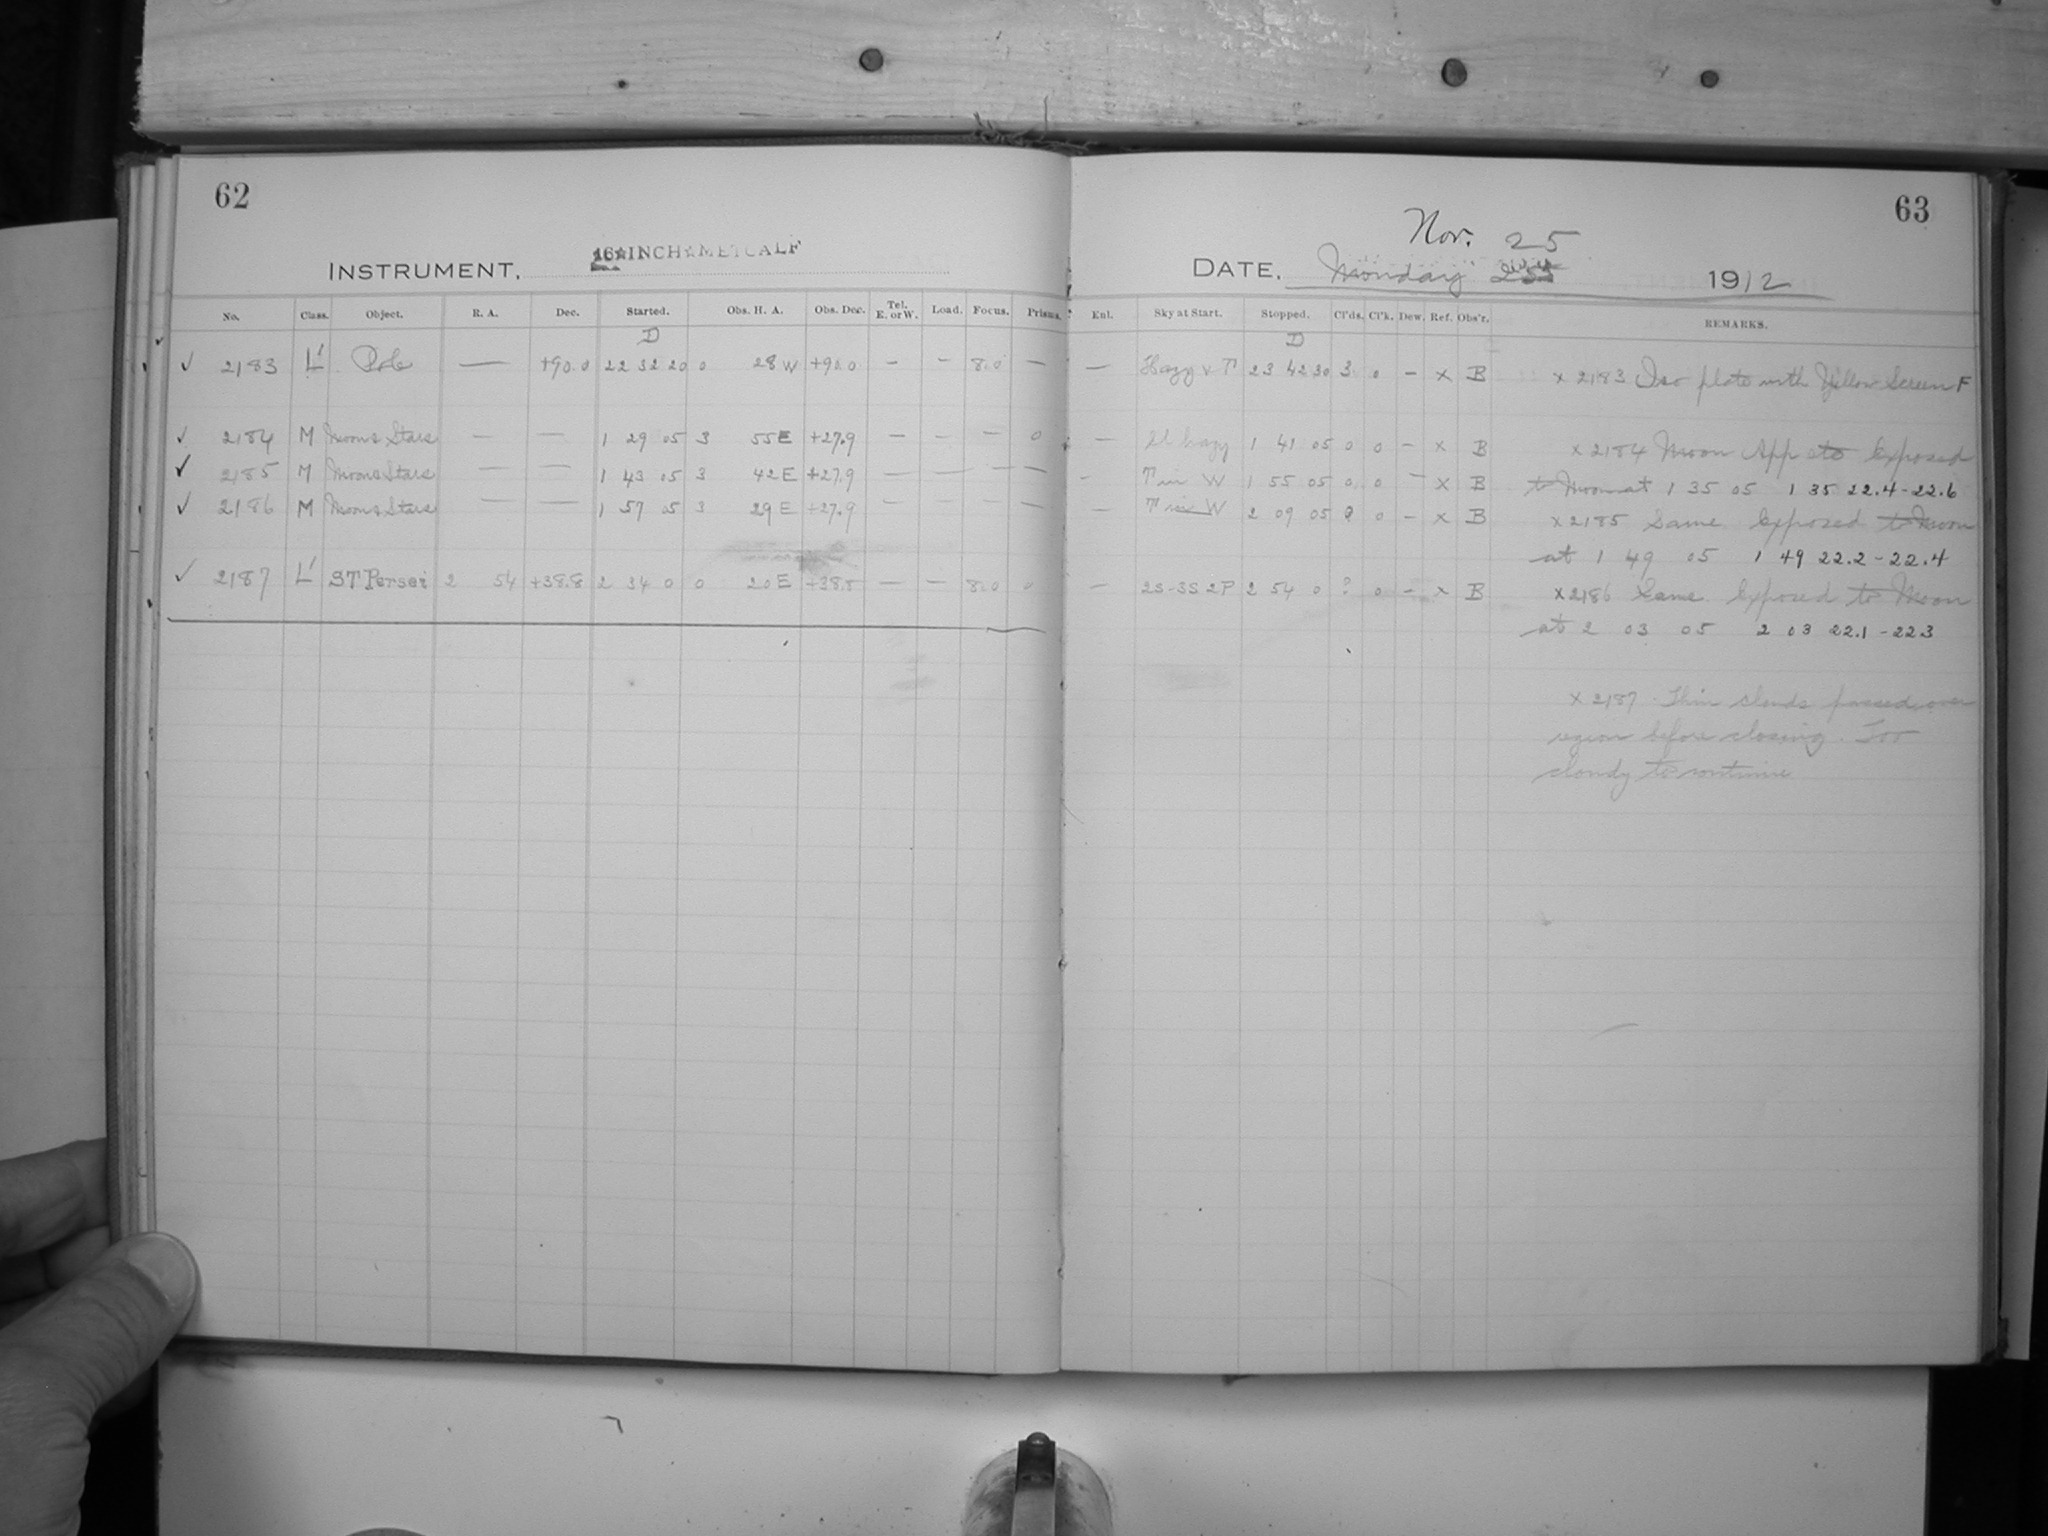 62
INSTRUMENT. 16☆INCH☆METCALF
No. Class. Object. R. A. Dec. Started. Obs. H. A. Obs. Dec. Tel. E. or W. Load. Focus. Prisms.
D
✓ 2183 L' Pole — +90.0 22 32 20 0 28 W +90.0 — — 8.0 —
✓ 2184 M Moon & Stars — — 1 29 05 3 55 E +27.9 — — — 0
✓ 2185 M Moon & Stars — — 1 43 05 3 42 E +27.9 — — — —
✓ 2186 M Moon & Stars — — 1 57 05 3 29 E +27.9 — — — —
✓ 2187 L' ST Persei 2 54 +38.8 2 34 0 0 20 E +38.8 — — 8.0 0
63
Nov. 25
DATE. Monday 1912
Enl. Sky at Start. Stopped. Cl'ds. Cl'k. Dew. Ref. Obs'r. REMARKS.
D
— Hazy v T 23 42 30 3 0 — x B
— Sl hazy 1 41 05 0 0 — x B
— T in W 1 55 05 0 0 — x B
— T in W 2 09 05 0 — x B
— 2S-3S 2P 2 54 0 ? 0 — x B
x 2183 Iso plate with Yellow Screen F
x 2184 Moon App sto Exposed
to Moon at 1 35 05 1 35 22.4-22.6
x 2185 Same Exposed to Moon
at 1 49 05 1 49 22.2-22.4
x 2186 Same Exposed to Moon
at 2 03 05 2 03 22.1-22.3
x 2187 Thin clouds passed over
region before closing. Too
cloudy to continue